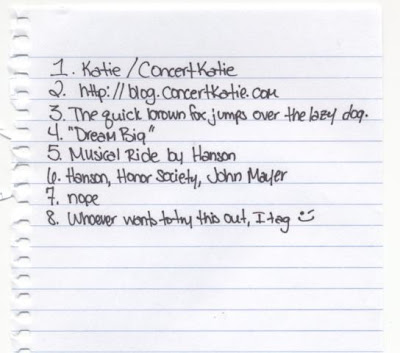 1. Katie / ConcertKatie
2. http://blog.concertkatie.com
3. The quick brown fox jumps over the lazy dog.
4. "Dream Big"
5. Musical Ride by Hanson
6. Hanson, Honor Society, John Mayer
7. nope
8. Whoever wants to try this out, I tag :)